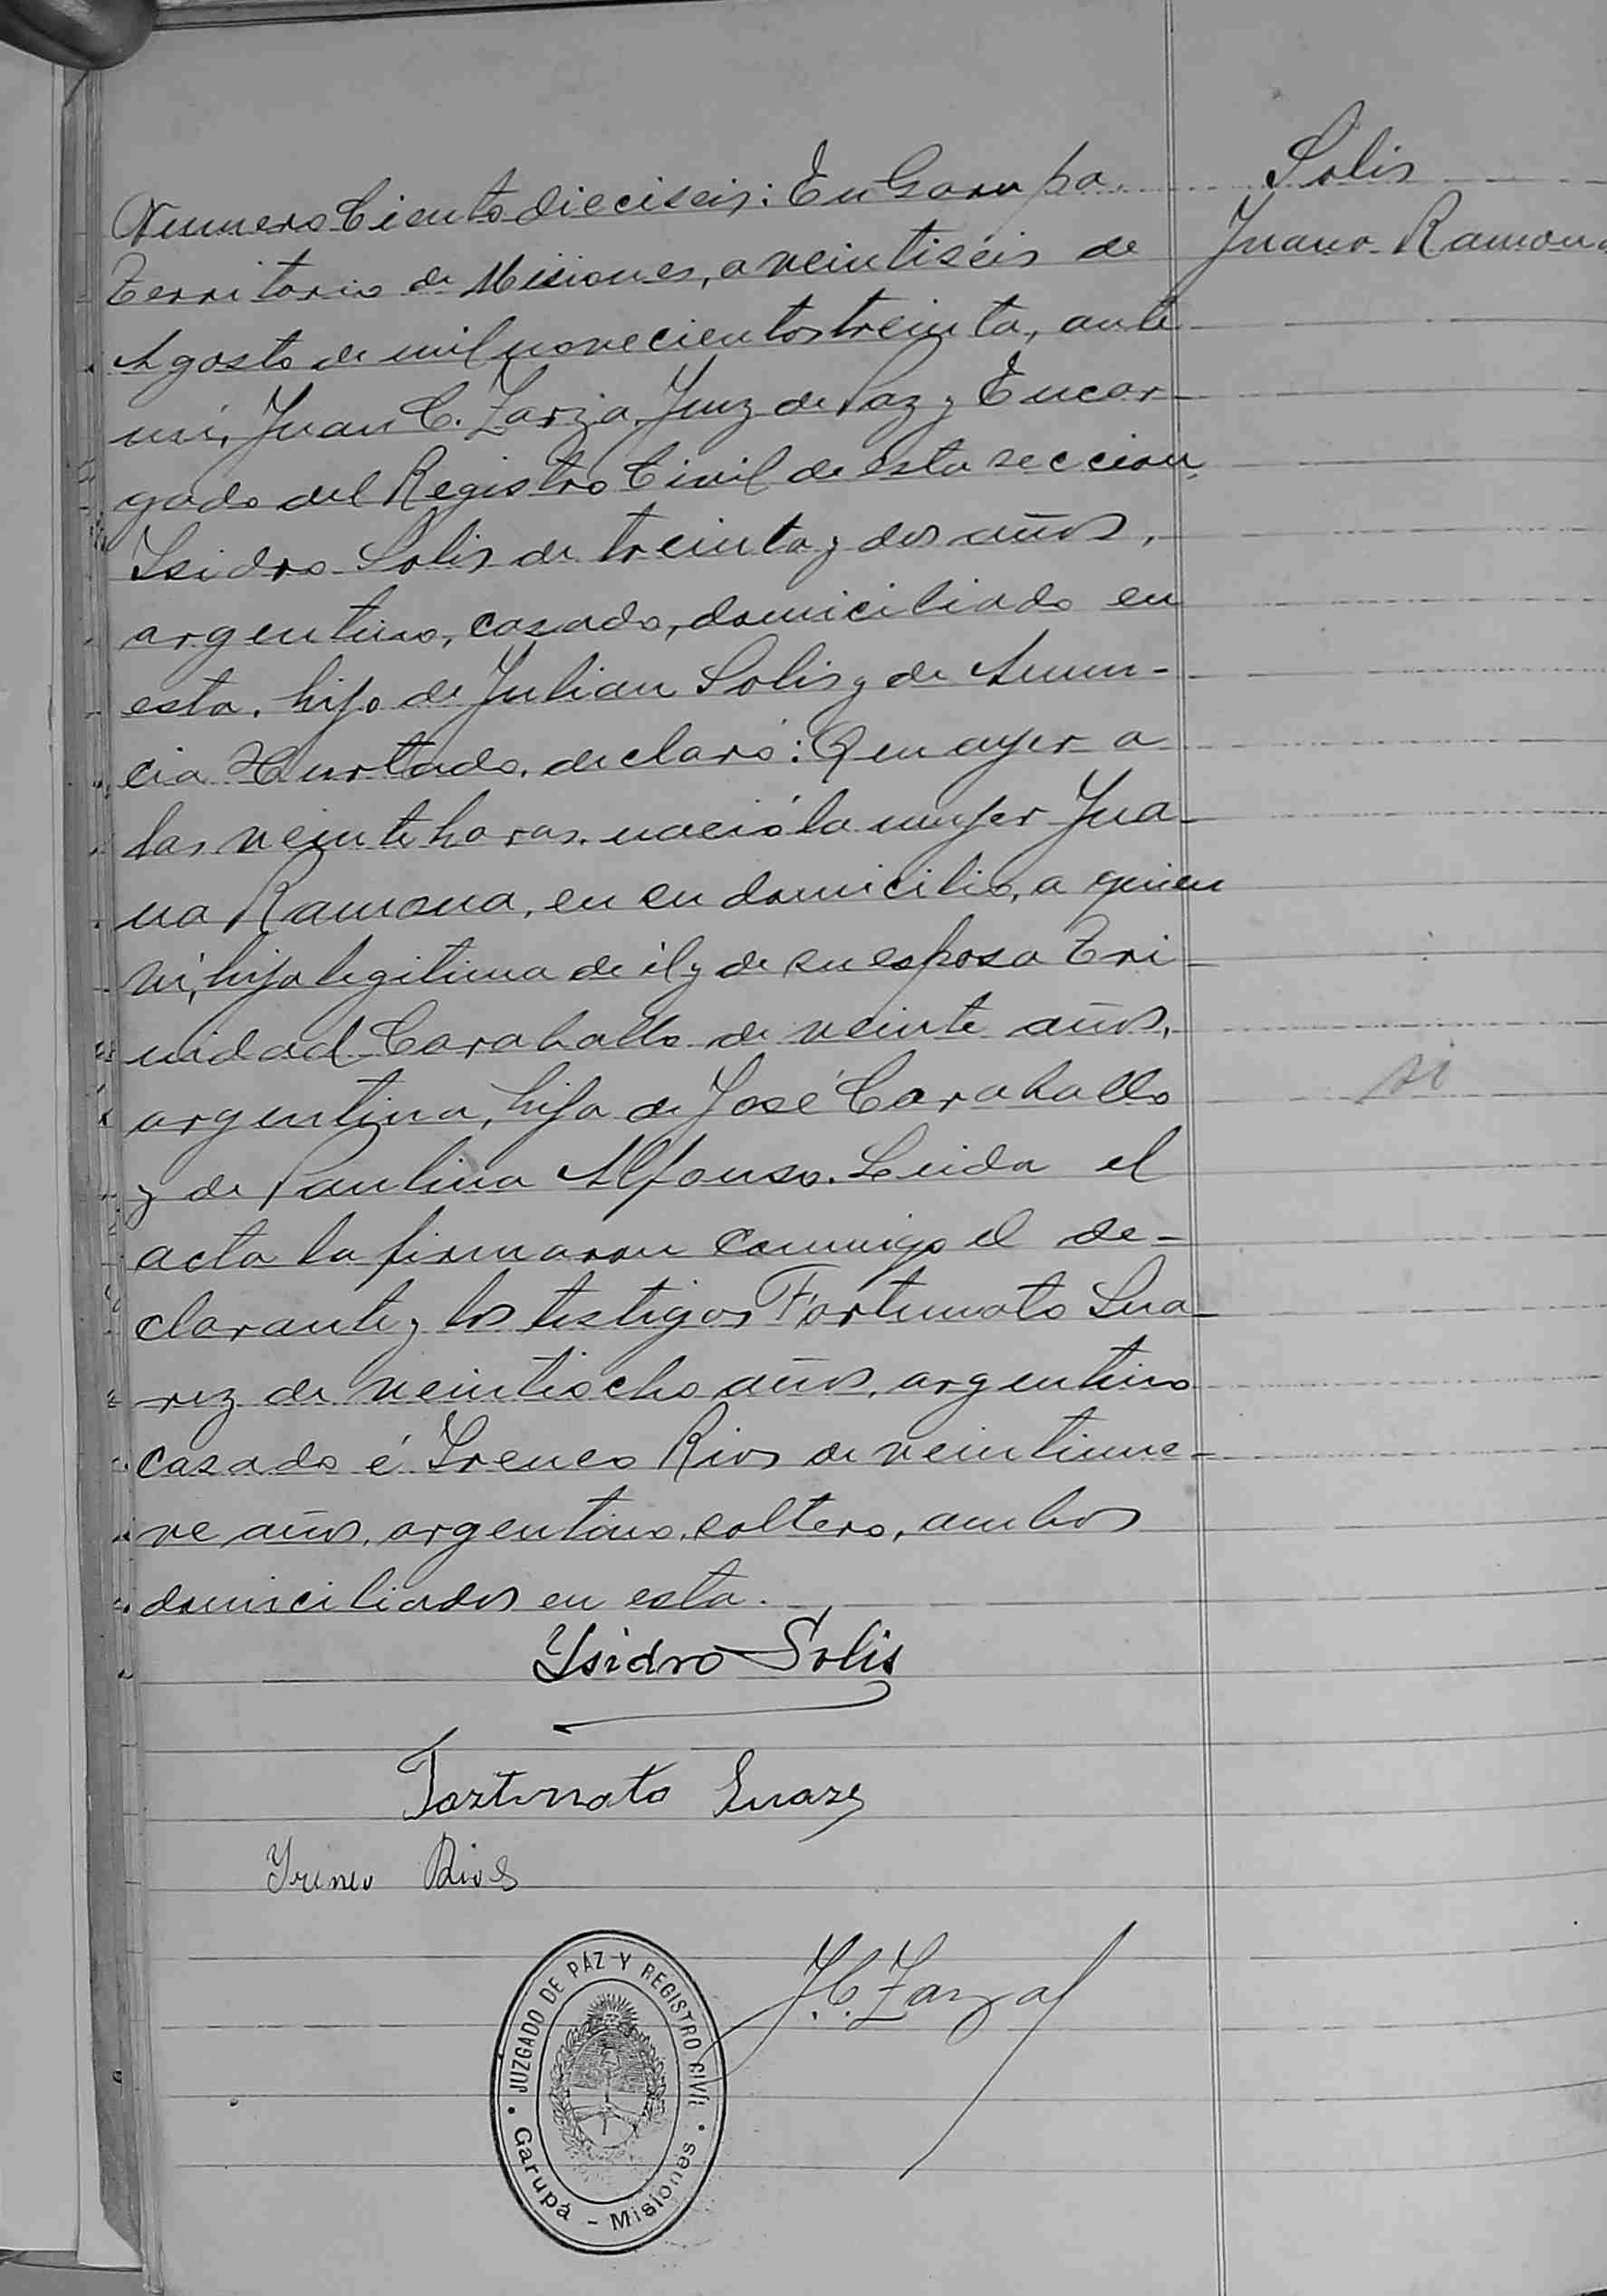 Solis
Juana Ramona
Numero Ciento dieciseis: En Garupa
Territorio de Misiones, a veintiséis de
Agosto de mil novecientos treinta, ante
mi, Juan C. Zarza, Juez de Paz y Encar-
gado del Registro Civil de esta seccion,
Isidro Solis de treinta y dos años,
argentino, casado, domiciliado en
esta, hijo de Julian Solis y de Anun-
cia Hurtado, declaró: Que ayer a
las veinte horas, nació la mujer Jua-
na Ramona, en su domicilio, a quien
vi, hija legitima de él y de su esposa Tri-
nidad Caraballo de veinte años,
argentina, hija de José Caraballo
y de Paulina Alfonso. Leida el
acta la firmaron conmigo el de-
clarante y los testigos Fortunato Sua-
rez de veintiocho años, argentino
casado é Ireneo Rios de veintinue-
ve años, argentino, soltero, ambos
domiciliados en esta.
Ysidro Solis
Fortunato Suarez
Yrineo Rios
J. C. Zarza
JUZGADO DE PAZ Y REGISTRO CIVIL
Garupá - Misiones